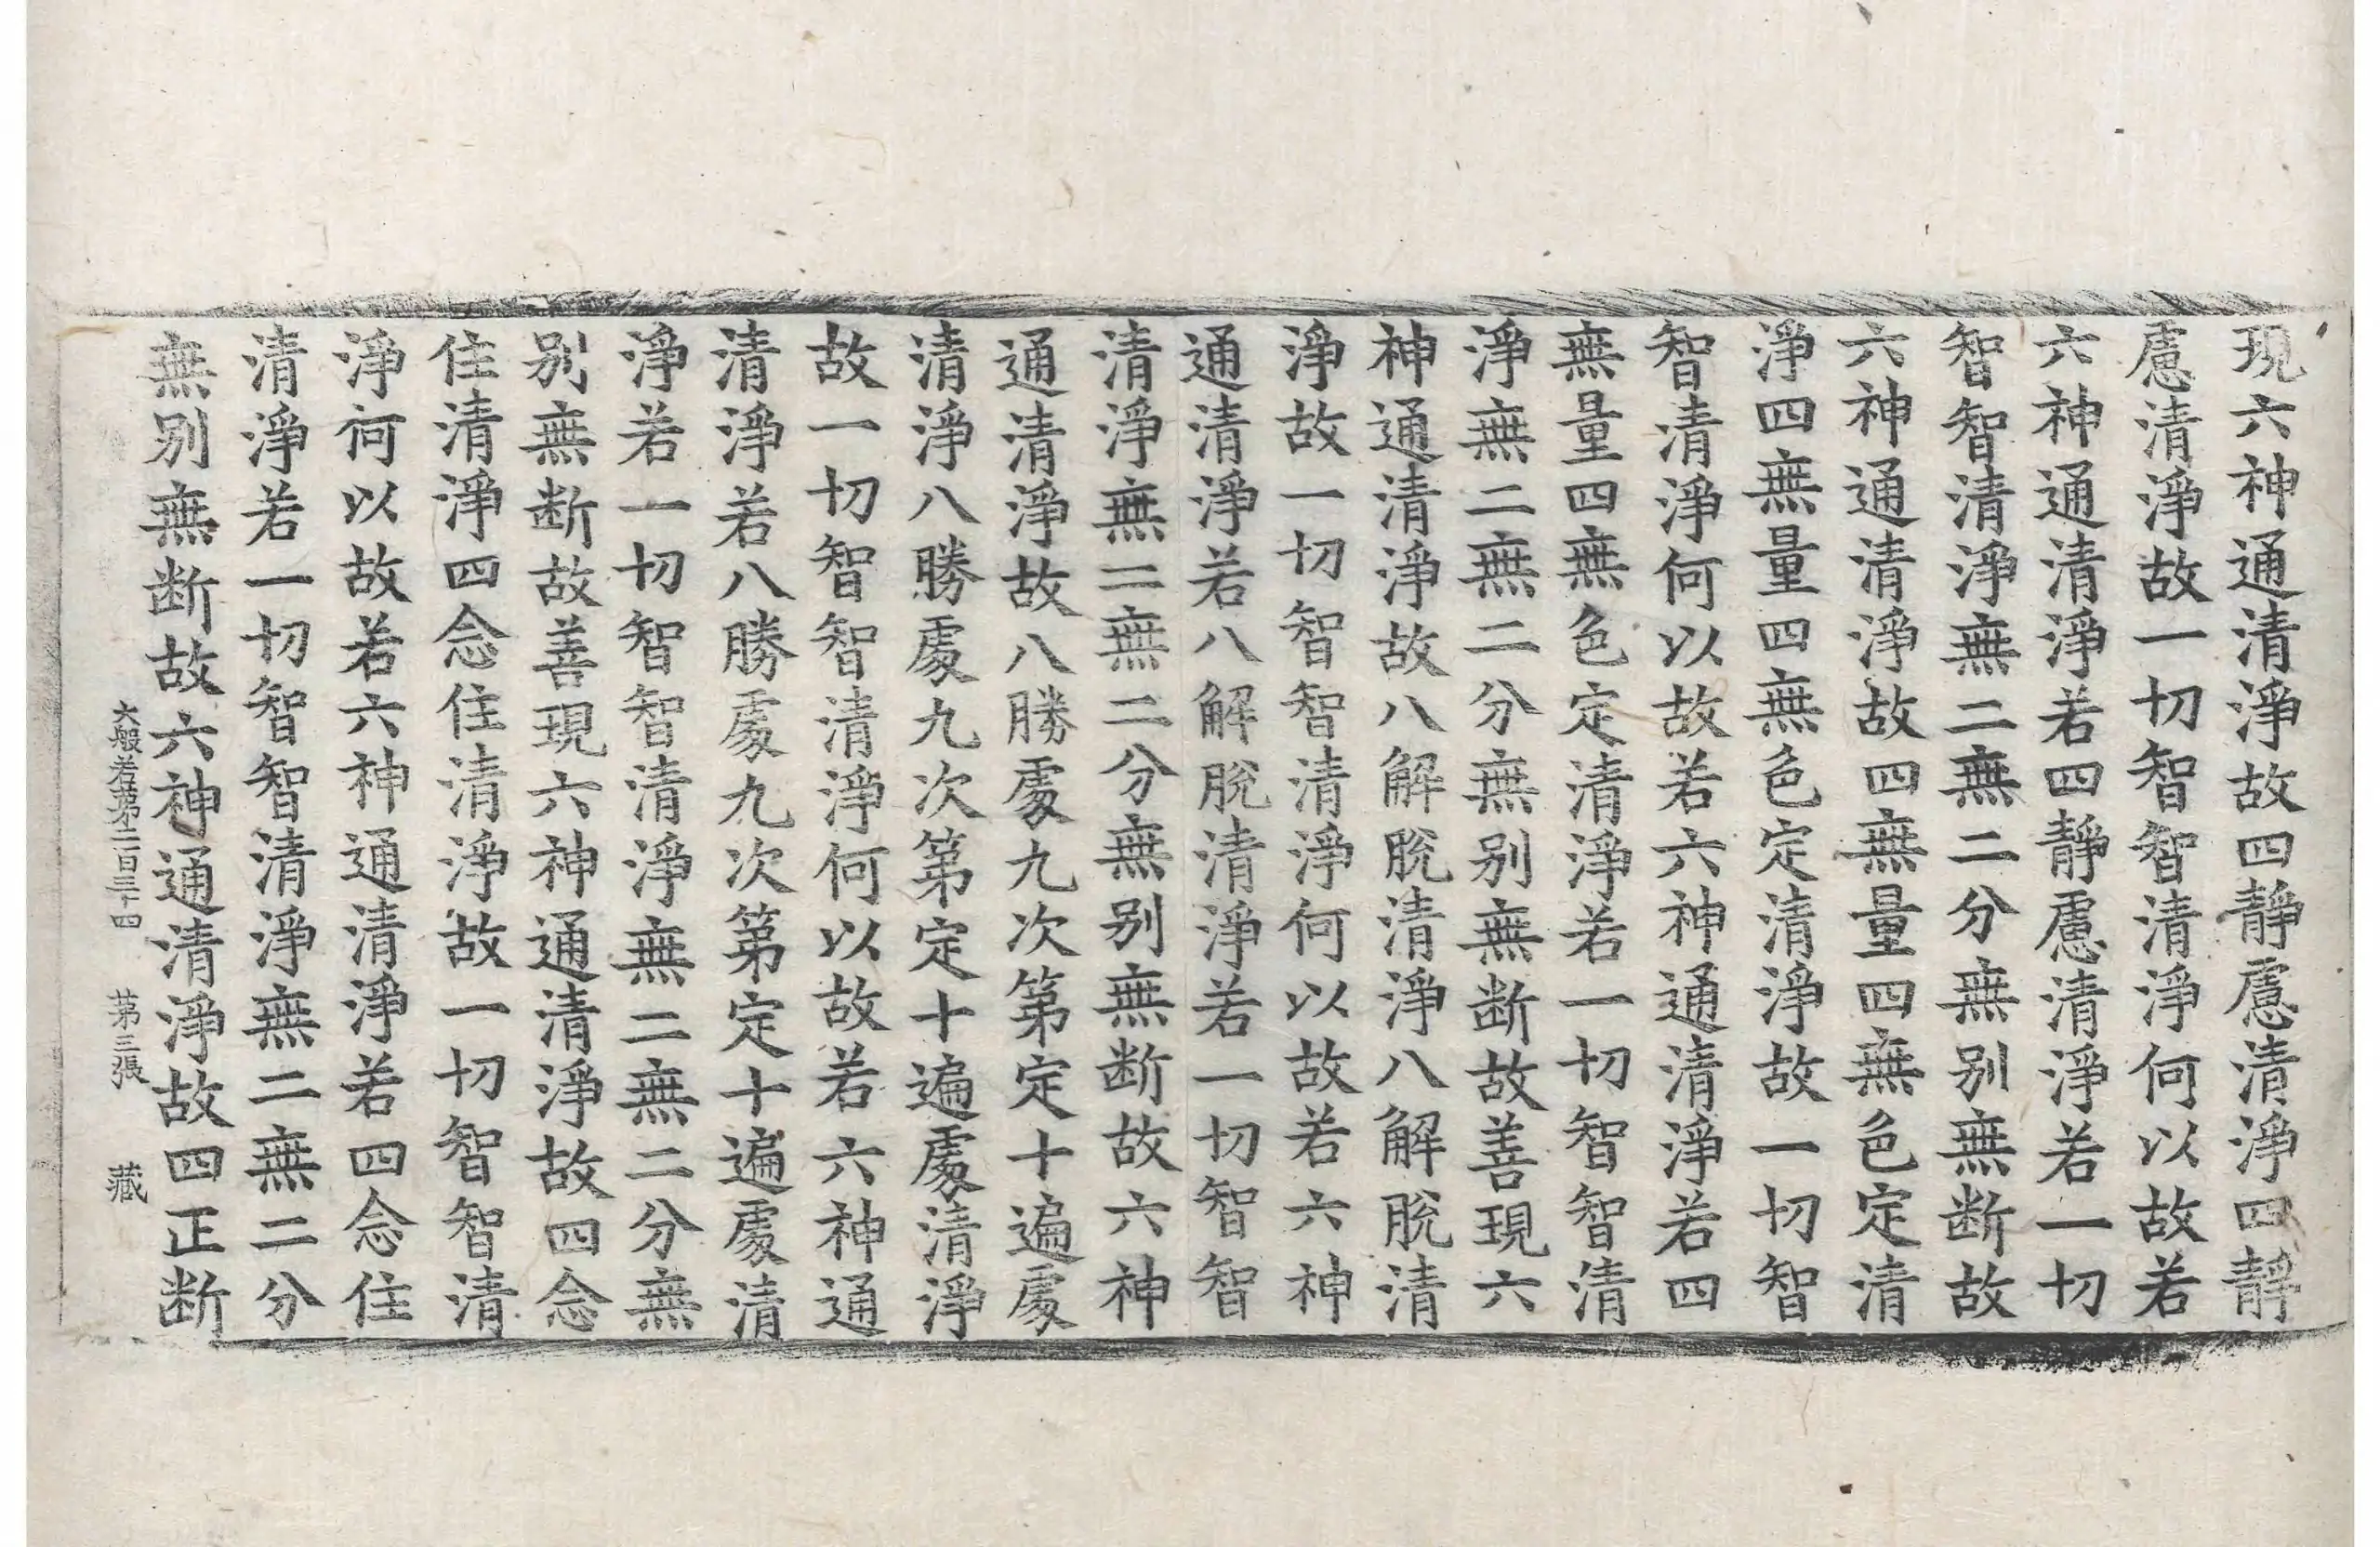 現六神通清淨故四靜慮清淨四靜
慮清淨故一切智智清淨何以故若
六神通清淨若四靜慮清淨若一切
智智清淨無二無二分無别無断故
六神通清淨故四無量四無色定清
淨四無量四無色定清淨故一切智
智清淨何以故若六神通清淨若四
無量四無色定清淨若一切智智清
淨無二無二分無别無断故善現六
神通清淨故八解脫清淨八解脫清
淨故一切智智清淨何以故若六神
通清淨若八解脫清淨若一切智智
清淨無二無二分無别無断故六神
通清淨故八勝處九次第定十遍處
清淨八勝處九次第定十遍處清淨
故一切智智清淨何以故若六神通
清淨若八勝處九次第定十遍處清
淨若一切智智清淨無二無二分無
别無断故善現六神通清淨故四念
住清淨四念住清淨故一切智智清
淨何以故若六神通清淨若四念住
清淨若一切智智清淨無二無二分
無别無断故六神通清淨故四正断
大般若第二百三十四 第三張 藏